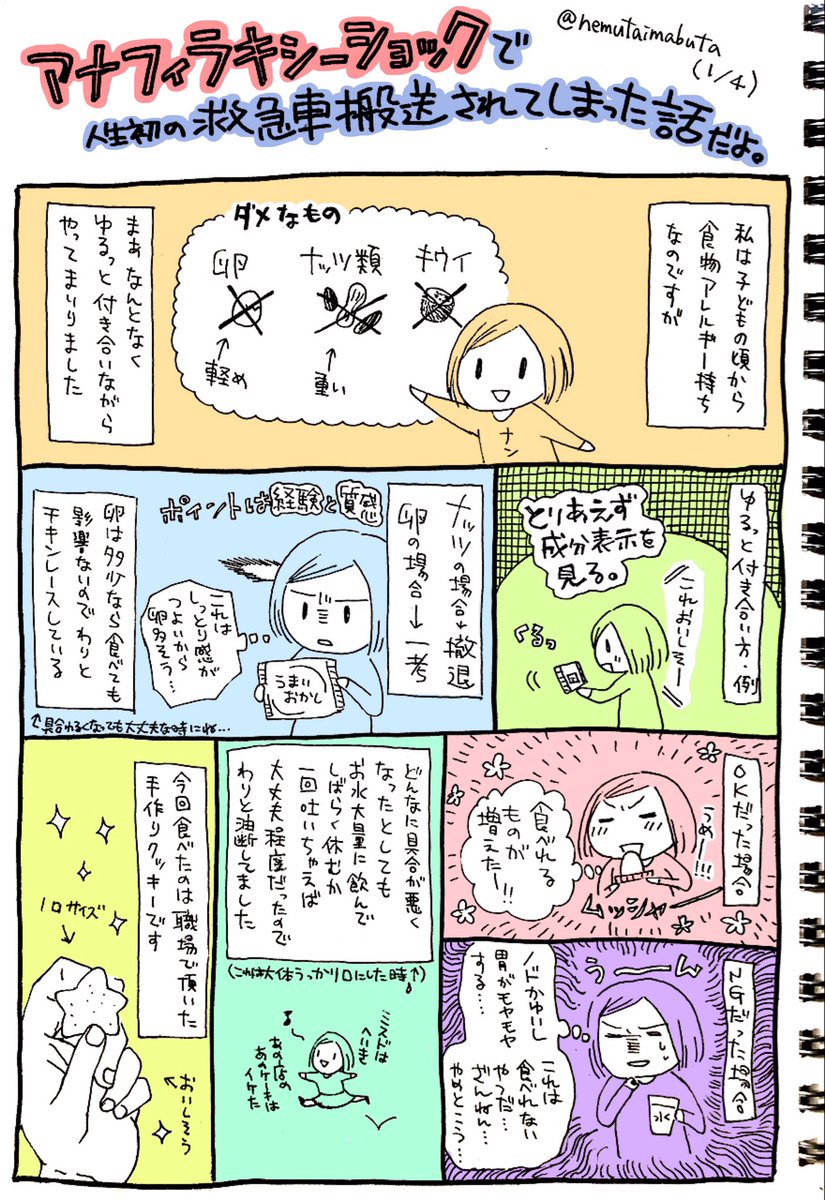 アナフィラキシーショックで
人生初の救急車搬送されてしまった話だよ。
@hemutaimabuta
(1/4)
私は子どもの頃から
食物アレルギー持ち
なのですが
ダメなもの
卵
ナッツ類
キウイ
軽め
重い
ナン
まぁなんとなく
ゆるっと付き合いながら
やってまいりました
ゆるっと付き合い方・例
とりあえず
成分表示を
見る。
これおいしそー
くるっ
ナッツの場合→撤退
卵の場合→一考
ポイントは経験と質感
これは
しっとり感が
つよいから
卵多そう…
うまい
おかし
卵は多少なら食べても
影響ないのでわりと
チキンレースしている
↑具合わるくなっても大丈夫な時にね…
OKだった場合
うめー!!!
食べれる
ものが
増えたー!!
ムッシャ
NGだった場合
うーん
ノドかゆいし
胃がモヤモヤ
する…
これは
食べれない
やつだ…
ざんねん…
やめとこう…
水
どんなに具合が悪く
なったとしても
お水大量に飲んで
しばらく休むか
一回吐いちゃえば
大丈夫程度だったので
わりと油断してました
(これは大体うっかり口にした時↑)
へいき
あの店の
あのケーキは
イケた
今回食べたのは職場で頂いた
手作りクッキーです
1口サイズ
おいしそう